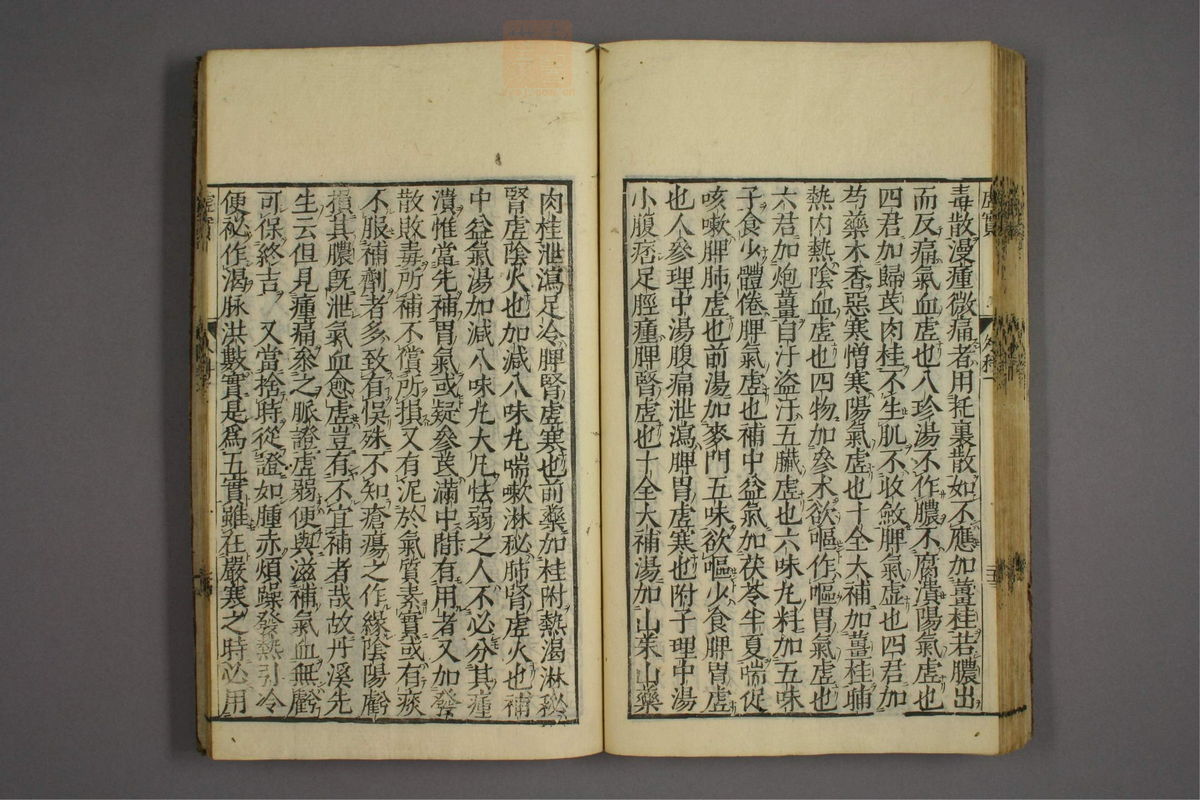 毒散漫瘇微痛者用托裏散如不應加薑桂若膿出
而反痛氣血虛也八珍湯不作膿不腐潰陽氣虛也
四君加歸芪肉桂不生肌不收斂脾氣虛也四君加
芍藥木香惡寒憎寒陽氣虛也十全大補加薑桂晡
熱內熱陰血虛也四物加參朮欲嘔作嘔胃氣虛也
六君加炮薑自汗盗汗五臟虛也六味丸料加五味
子食少體倦脾氣虛也補中益氣加茯苓半夏喘促
咳嗽脾肺虛也前湯加麥門五味欲嘔少食脾胃虛
也人參理中湯腹痛泄瀉脾胃虛寒也附子理中湯
小腹痞足脛瘇脾腎虛也十全大補湯加山茱山藥
肉桂泄瀉足冷脾腎虛寒也前藥加桂附熱渴淋秘
腎虛陰火也加減八味丸喘嗽淋秘肺腎虛火也補
中益氣湯加減八味丸大凡怯弱之人不必分其瘇
潰惟當先補胃氣或疑參芪滿中間有用者又加發
散敗毒所補不償所損又有泥於氣質素實或有痰
不服補劑者多致有悮殊不知瘡瘍之作緣陰陽虧
損其膿既泄氣血愈虛豈有不宜補者哉故丹溪先
生云但見瘇痛參之脈證虛弱便與滋補氣血無虧
可保終吉　又當捨時從證如腫赤煩躁發熱引冷
便祕作渴脉洪數實是爲五實雖在嚴寒之時必用
虛實